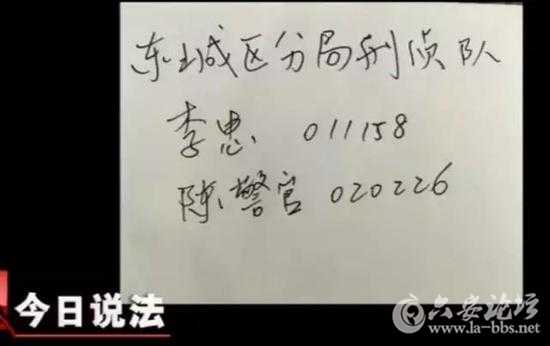 东城区分局刑侦队
李忠 011158
陈警官 020226
今日说法
六安论坛
www.la-bbs.net